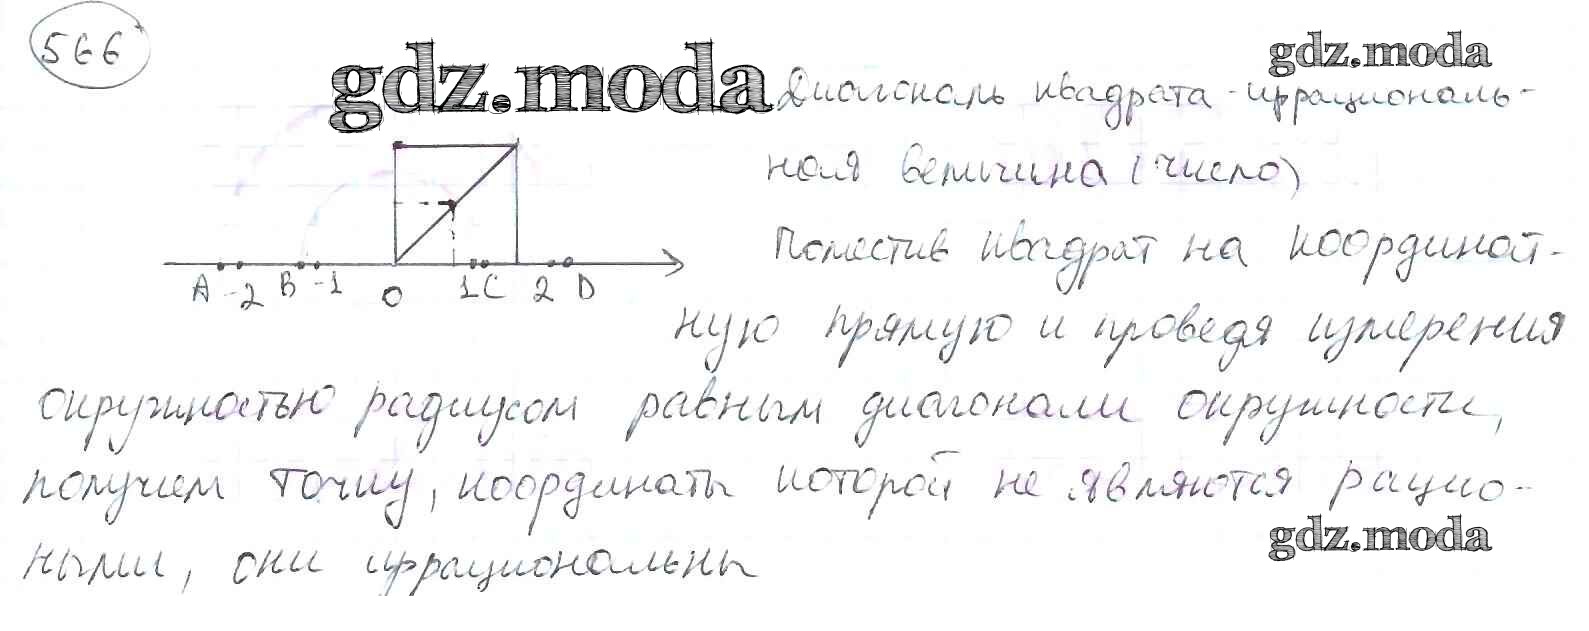 566
gdz.moda
gdz.moda
Диагональ квадрата - иррациональ-
ная величина (число)
Поместив квадрат на координат-
A -2 B -1 0 1 C 2 D
ную прямую и проведя измерения
окружностью радиусом равным диагонали окружности,
получим точку, координаты которой не являются рацио-
gdz.moda
ными, они иррациональны